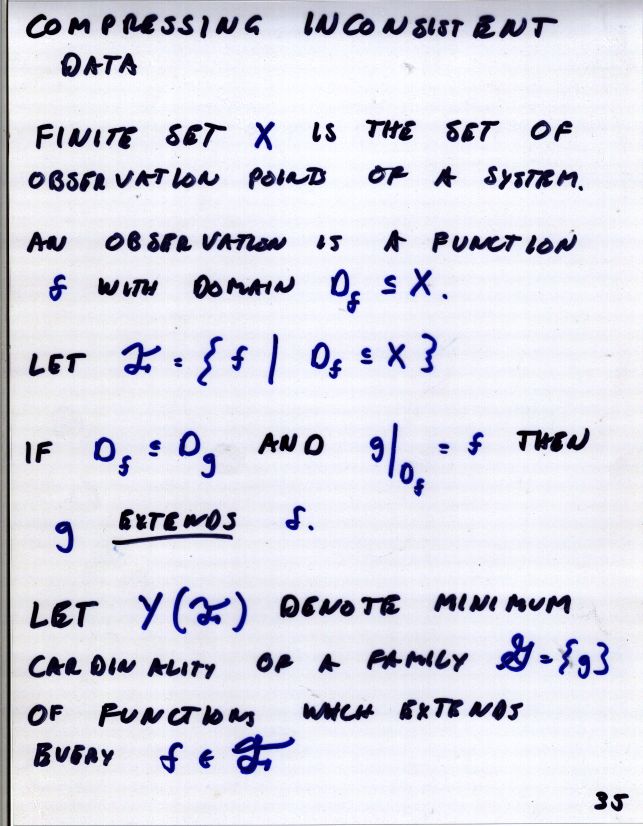 COMPRESSING INCONSISTENT
DATA
FINITE SET X IS THE SET OF
OBSERVATION POINTS OF A SYSTEM.
AN OBSERVATION IS A FUNCTION
f WITH DOMAIN D_f ⊆ X.
LET ℱ = { f | D_f ⊆ X }
IF D_f ⊆ D_g AND g|_{D_f} = f THEN
g EXTENDS f.
LET γ(ℱ) DENOTE MINIMUM
CARDINALITY OF A FAMILY 𝒢 = {g}
OF FUNCTIONS WHICH EXTENDS
EVERY f ∈ ℱ
35